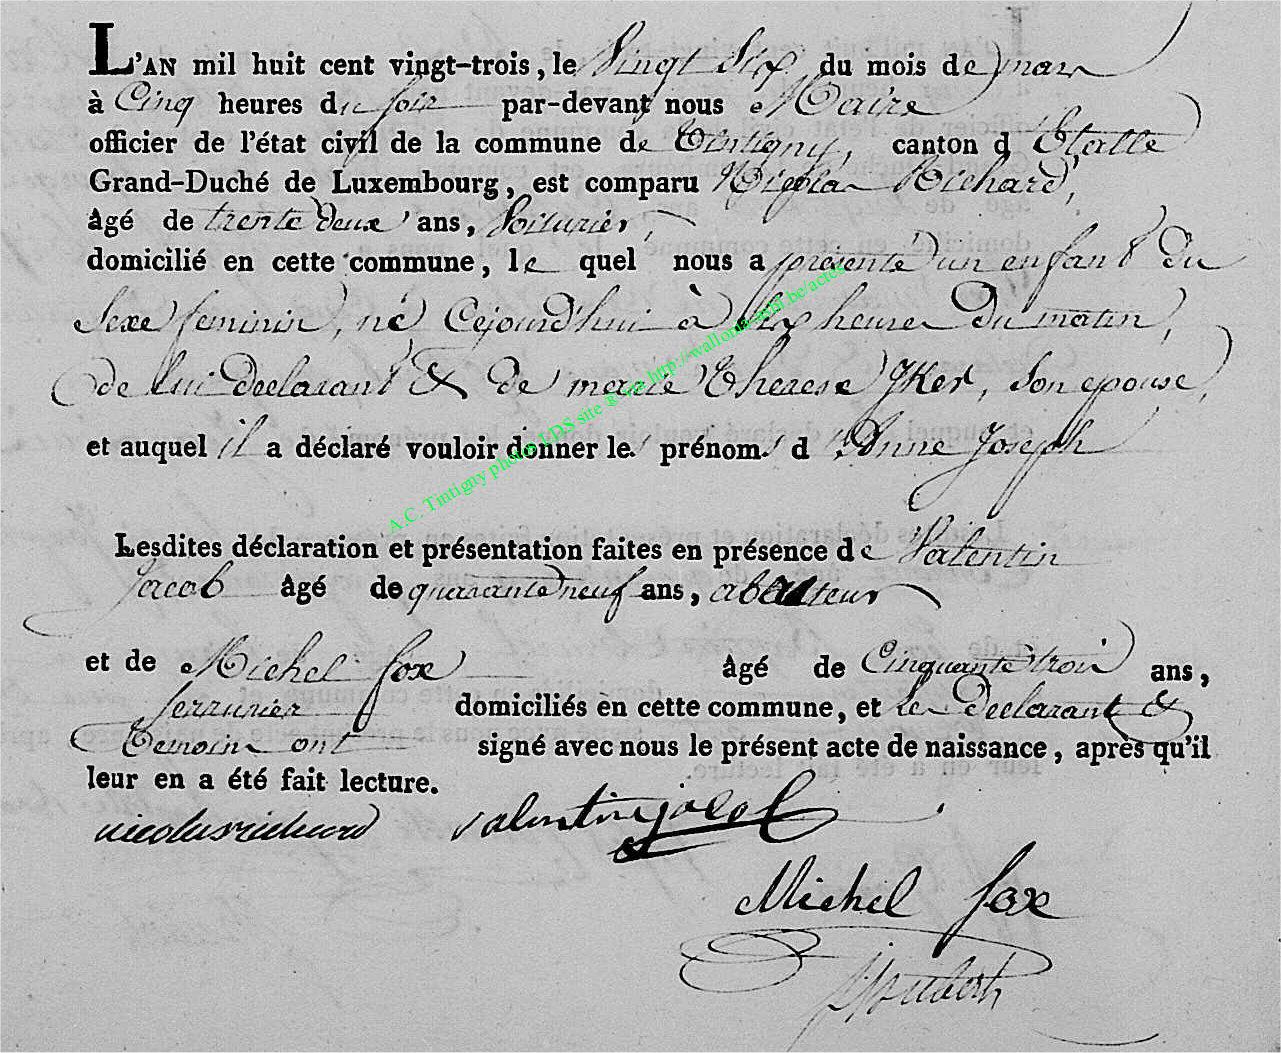 L'AN mil huit cent vingt-trois, le Vingt Six du mois de mars
à Cinq heures du soir par-devant nous Maire
officier de l'état civil de la commune de Tintigny, canton d Etalle
Grand-Duché de Luxembourg, est comparu Nicolas Richard,
âgé de trente deux ans, Voiturier,
domicilié en cette commune, le quel nous a présenté un enfant du
Sexe feminin, né Cejourd'hui à Six heures du matin,
de lui declarant & de marie Therese Jker, Son epouse,
et auquel il a déclaré vouloir donner les prénoms d Anne Joseph
Lesdites déclaration et présentation faites en présence de Valentin
Jacob âgé de quarante neuf ans,
et de Michel fox âgé de Cinquante trois ans,
Serrurier domiciliés en cette commune, et les Declarant &
Temoins ont signé avec nous le présent acte de naissance, après qu'il
leur en a été fait lecture.
nicolas richard valentin jacob
Michel fox
A.C. Tintigny photos LDS site gw via http://wallonia-asbl.be/actes